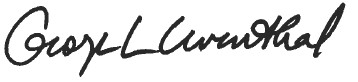 George L Leventhal